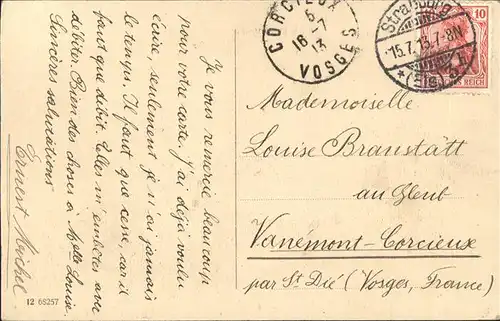 CORCIEUX
6
16-7
13
VOSGES
Strassburg
15.7.13.7-8N
* (Els) *
10
REICH
Je vous remercie beaucoup
pour votre carte. J'ai déjà voulu
écrire, seulement je n'ai jamais
le temps. Il faut que cesse, car il
faut que débit. Elles m'embêtes avec
débiter. Bien des choses à Mlle Louise.
Sincères salutations
Ernest Michel
Mademoiselle
Louise Braustätt
au Gleut
Vanémont-Corcieux
par St Dié (Vosges, France)
12 68257